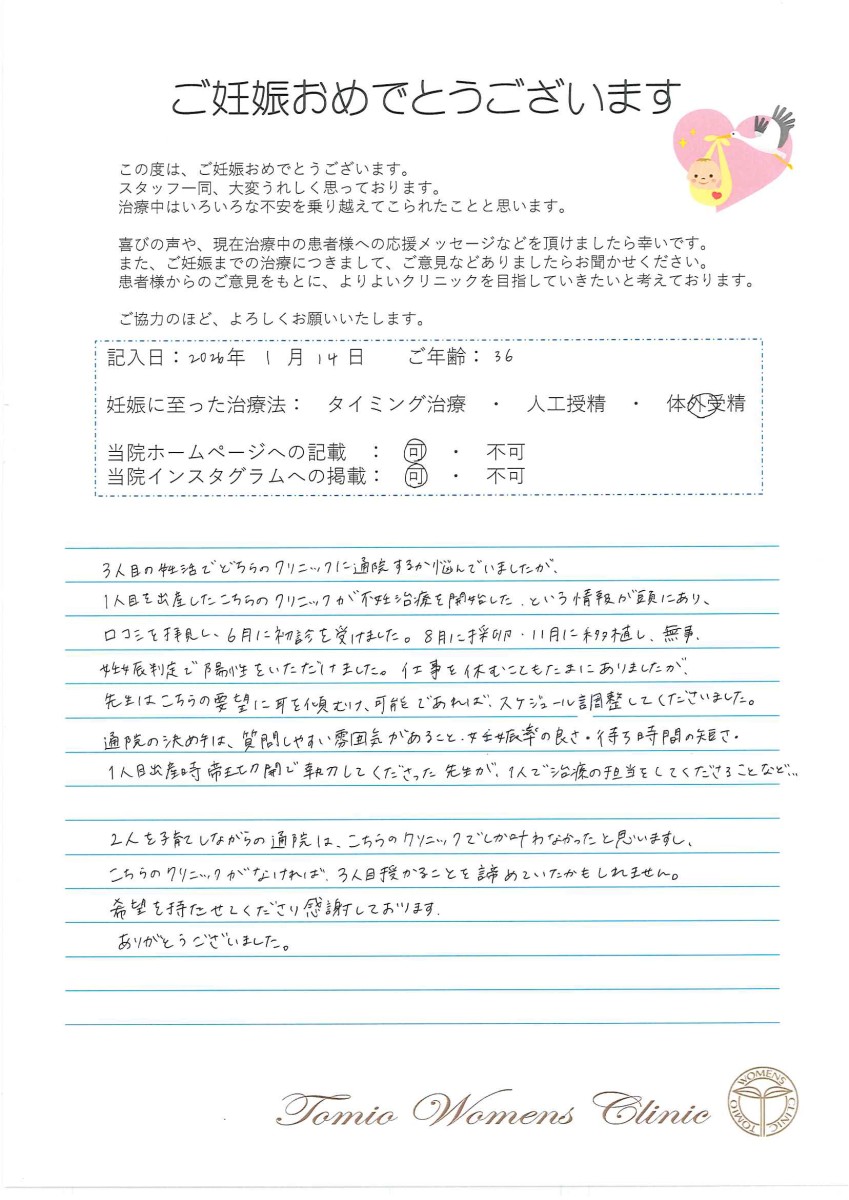 ご妊娠おめでとうございます
この度は、ご妊娠おめでとうございます。
スタッフ一同、大変うれしく思っております。
治療中はいろいろな不安を乗り越えてこられたことと思います。
喜びの声や、現在治療中の患者様への応援メッセージなどを頂けましたら幸いです。
また、ご妊娠までの治療につきまして、ご意見などありましたらお聞かせください。
患者様からのご意見をもとに、よりよいクリニックを目指していきたいと考えております。
ご協力のほど、よろしくお願いいたします。
記入日：2026年 1月 14日 ご年齢：36
妊娠に至った治療法： タイミング治療 ・ 人工授精 ・ 体外受精
当院ホームページへの記載 ： 可 ・ 不可
当院インスタグラムへの掲載： 可 ・ 不可
3人目の妊活でどちらのクリニックに通院するか悩んでいましたが、
1人目を出産したこちらのクリニックが不妊治療を開始した、という情報が頭にあり、
口コミを拝見し、6月に初診を受けました。8月に採卵・11月に移植し、無事、
妊娠判定で陽性をいただけました。仕事を休むこともたまにありましたが、
先生はこちらの要望に耳を傾むけ、可能であれば、スケジュール調整してくださいました。
通院の決め手は、質問しやすい雰囲気があること・妊娠率の良さ・待ち時間の短さ・
1人目出産時帝王切開で執刀してくださった先生が、1人で治療の担当をしてくださることなど…
2人を子育てしながらの通院は、こちらのクリニックでしか叶わなかったと思いますし、
こちらのクリニックがなければ、3人目授かることを諦めていたかもしれません。
希望を持たせてくださり感謝しております。
ありがとうございました。
Tomio Womens Clinic
WOMENS CLINIC TOMIO